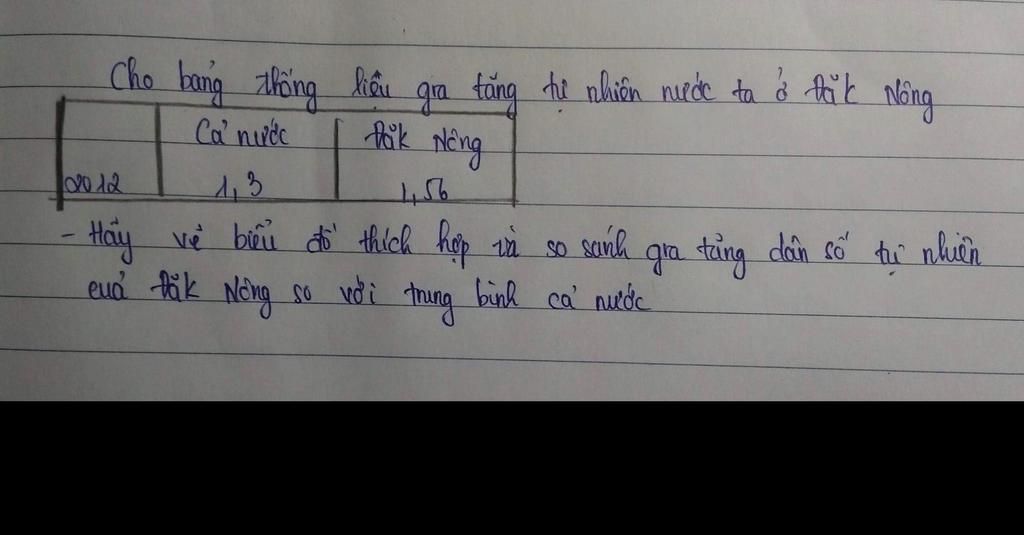 Cho bảng thống liệu gia tăng tự nhiên nước ta ở Đăk Nông
Cả nước Đăk Nông
2012 1,3 1,56
- Hãy vẽ biểu đồ thích hợp và so sánh gia tăng dân số tự nhiên
cuả Đăk Nông so với trung bình cả nước